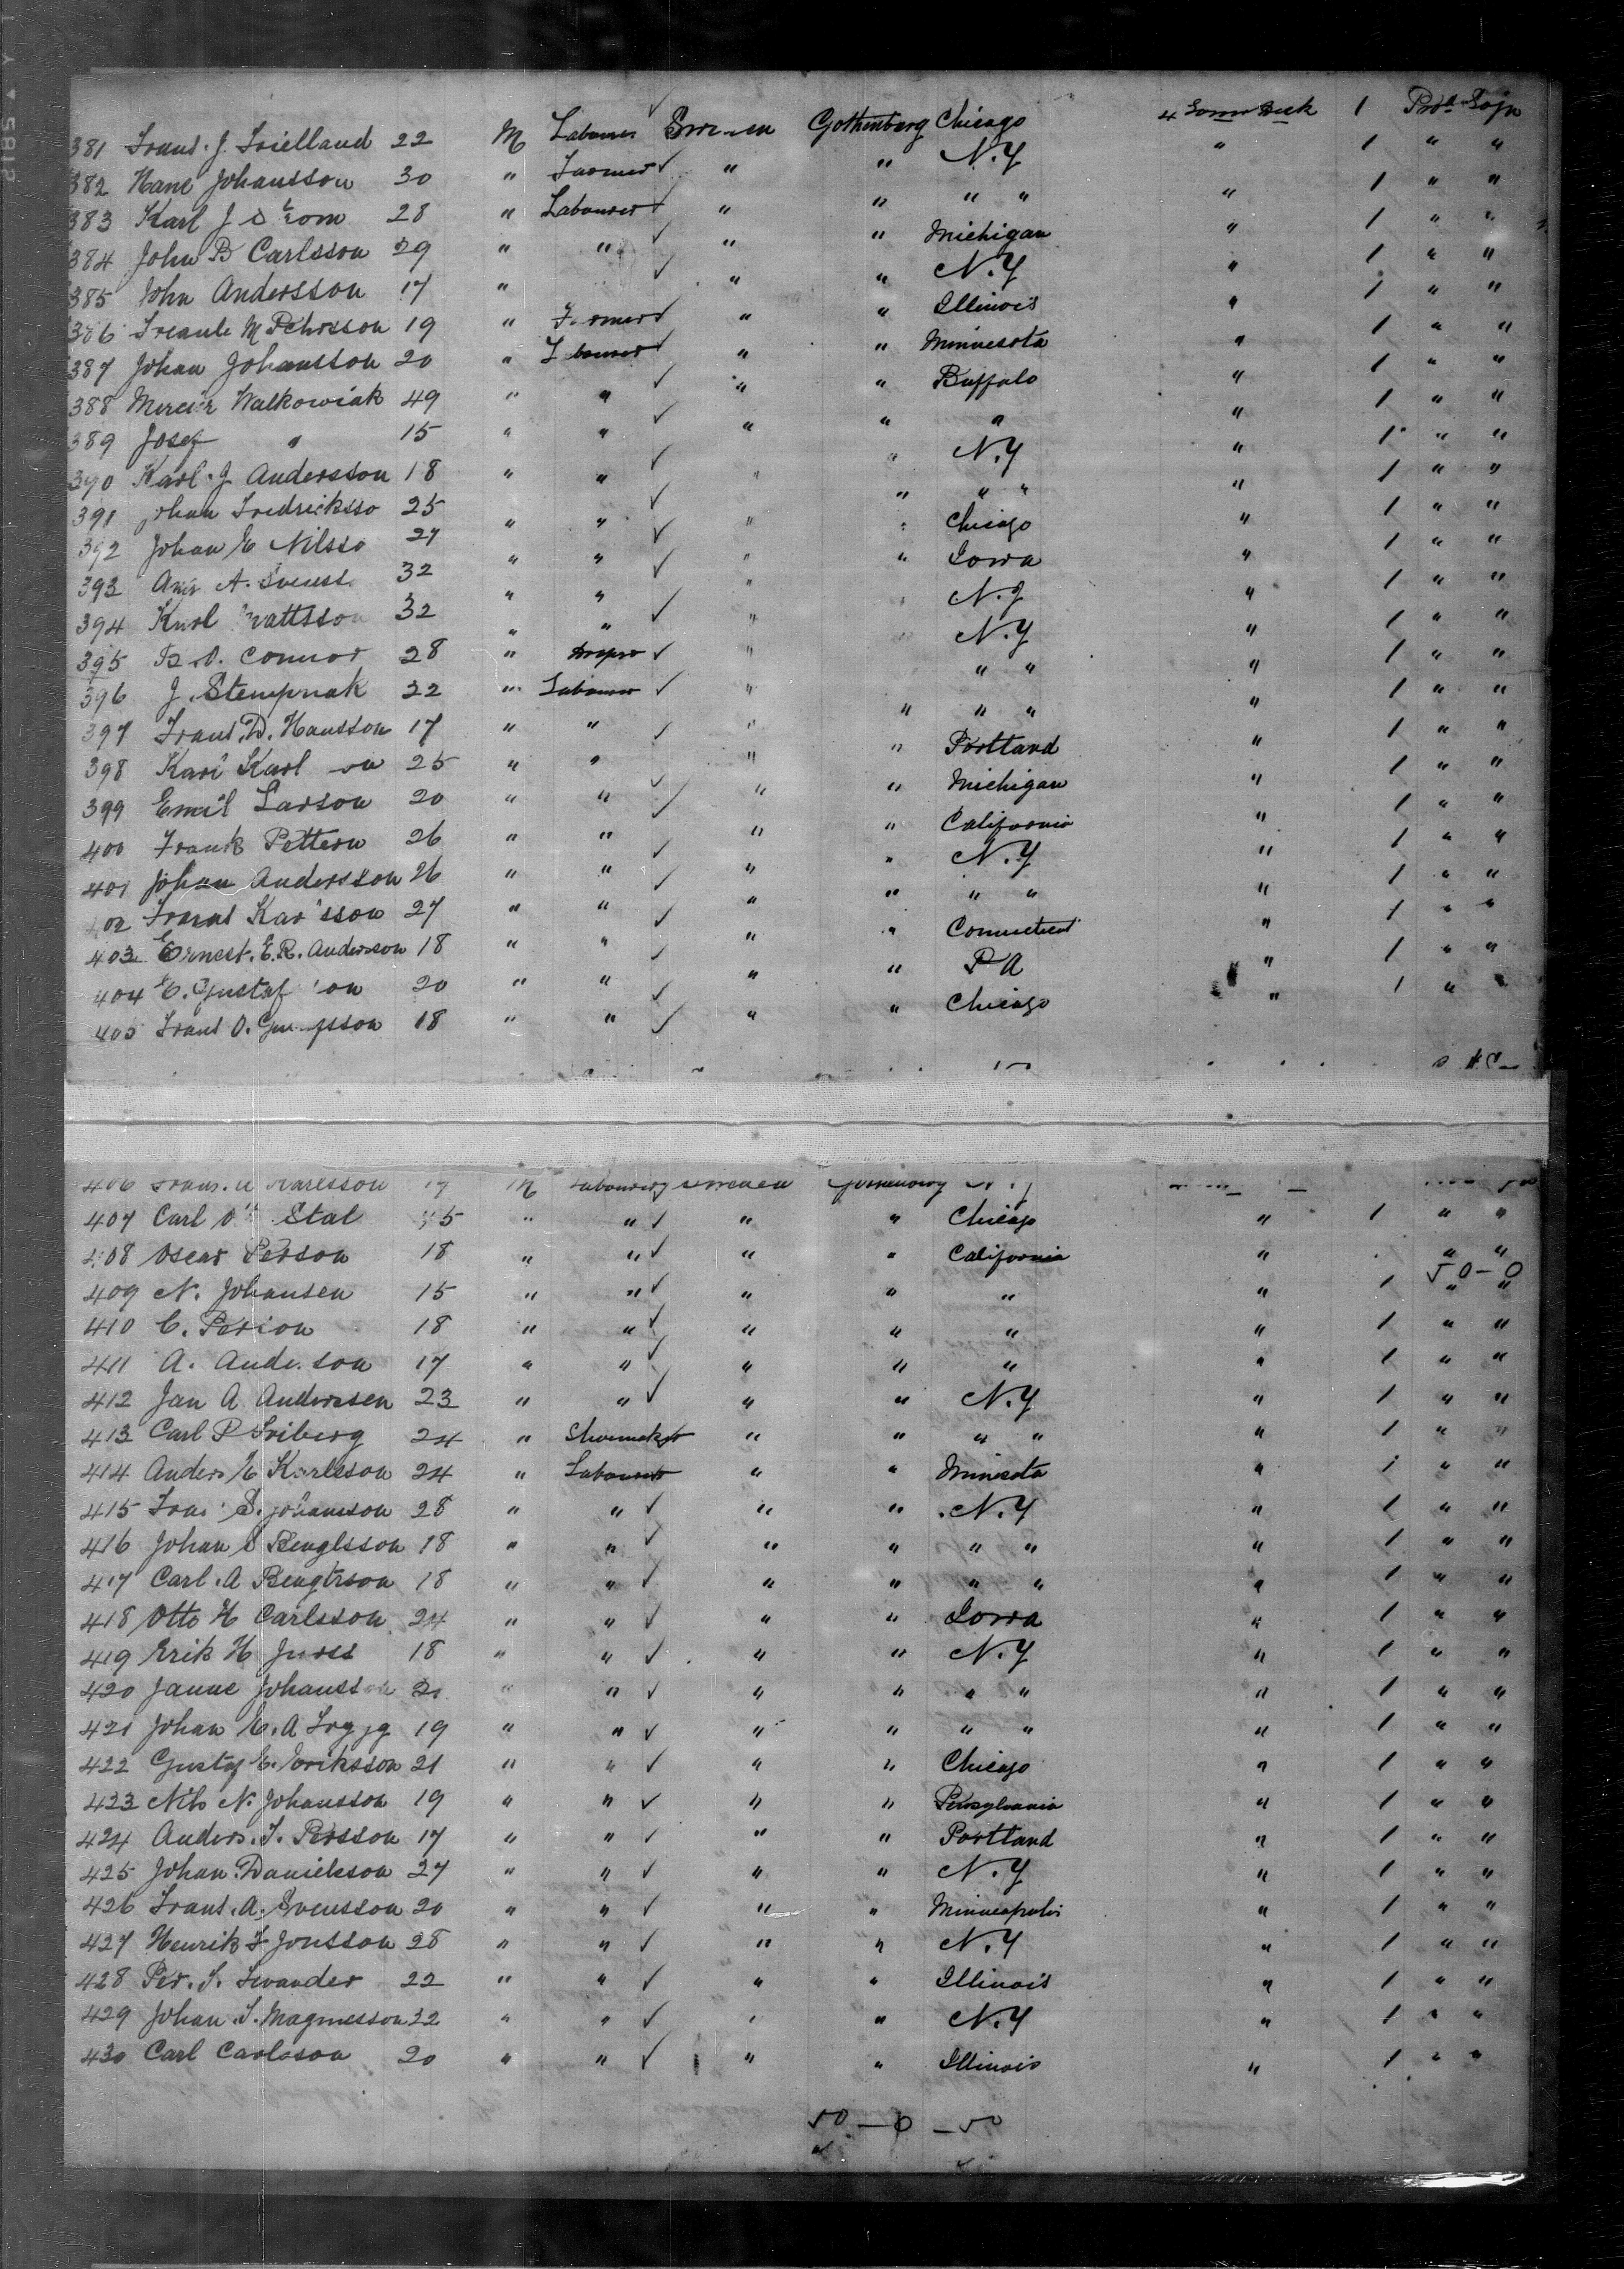 381 Frans. J. Frielland 22 M Labourer Sweden Gothenburg Chicago 4 Lower Deck 1 Prod Sojn
382 Hans Johansson 30 " Farmer ✓ " " N.Y " 1 " "
383 Karl J 28 " Labourer ✓ " " " " " 1 " "
384 John B Carlsson 29 " " ✓ " " Michigan " 1 " "
385 John Andersson 17 " ✓ " " N.Y " 1 " "
386 M Pehrsson 19 " Farmer ✓ " " Illinois " 1 " "
387 Johan Johansson 20 " Labourer ✓ " " Minnesota " 1 " "
388 Walkowiak 49 " " ✓ " " Buffalo " 1 " "
389 Josef " 15 " " ✓ " " " " 1 " "
390 Karl. J Andersson 18 " " ✓ " " N.Y " 1 " "
391 Johan Fredricksso 25 " " ✓ " " " " " 1 " "
392 Johan E Nilsso 27 " " ✓ " " Chicago " 1 " "
393 A. Svenss 32 " " ✓ " " Iowa " 1 " "
394 Karl Mattsson 32 " " ✓ " " N.Y " 1 " "
395 O. Connor 28 " ✓ " N.Y " 1 " "
396 J. Stempnak 22 " Labourer ✓ " " " " 1 " "
397 Frans. D. Hansson 17 " " ✓ " " " " " 1 " "
398 Karl Karl on 25 " " ✓ " " Portland " 1 " "
399 Emil Larson 20 " " ✓ " " Michigan " 1 " "
400 Frank Pettern 26 " " ✓ " " California " 1 " "
401 Johan Andersson 26 " " ✓ " " N.Y " 1 " "
402 Frans Kar'sson 27 " " ✓ " " " " " 1 " "
403 Ernest. E.R. Anderson 18 " " ✓ " " Connecticut " 1 " "
404 E. Gustaf on 20 " " ✓ " " PA " 1 " "
405 Frans O. 18 " " ✓ " " Chicago " 1 "
406 Karlsson 17 M Labourer Sweden Gothenburg N.Y
407 Carl Stal " " ✓ " " Chicago " 1 " "
408 Oscar Person 18 " " ✓ " " California " " "
50 - 0
409 N. Johansen 15 " " ✓ " " " " 1 " "
410 C. Person 18 " " ✓ " " " " 1 " "
411 A. Ande.son 17 " " ✓ " " " " 1 " "
412 Jan A Andersen 23 " " ✓ " " N.Y " 1 " "
413 Carl P Friberg 24 " Shoemaker " " " " " 1 " "
414 Anders E Karlsson 24 " Labourer " " Minesota " 1 " "
415 Fran S. Johansson 28 " " ✓ " " N.Y " 1 " "
416 Johan S Bengtsson 18 " " ✓ " " " " " 1 " "
417 Carl. A Bengtsson 18 " " ✓ " " " " " 1 " "
418 Otto H Carlsson 24 " " ✓ " " Iowa " 1 " "
419 Erik H 18 " " ✓ " " N.Y " 1 " "
420 Janne Johansson " " ✓ " " " " " 1 " "
421 Johan E. A 19 " " ✓ " " " " " 1 " "
422 Gustaf E. Eriksson 21 " " ✓ " " Chicago " 1 " "
423 Nils N. Johansson 19 " " ✓ " " Pensylvania " 1 " "
424 Anders. J. Persson 17 " " ✓ " " Portland " 1 " "
425 Johan. Danielsson 27 " " ✓ " " N.Y " 1 " "
426 Frans. A. Svensson 20 " " ✓ " " Minneapolis " 1 " "
427 Henrik F Jonsson 28 " " ✓ " " N.Y " 1 " "
428 Per. S. Swander 22 " " ✓ " " Illinois " 1 " "
429 Johan. S. Magnusson 22 " " ✓ " " N.Y " 1 " "
430 Carl Carlsson 20 " " ✓ " " Illinois " 1 " "
50 - 0 - 50